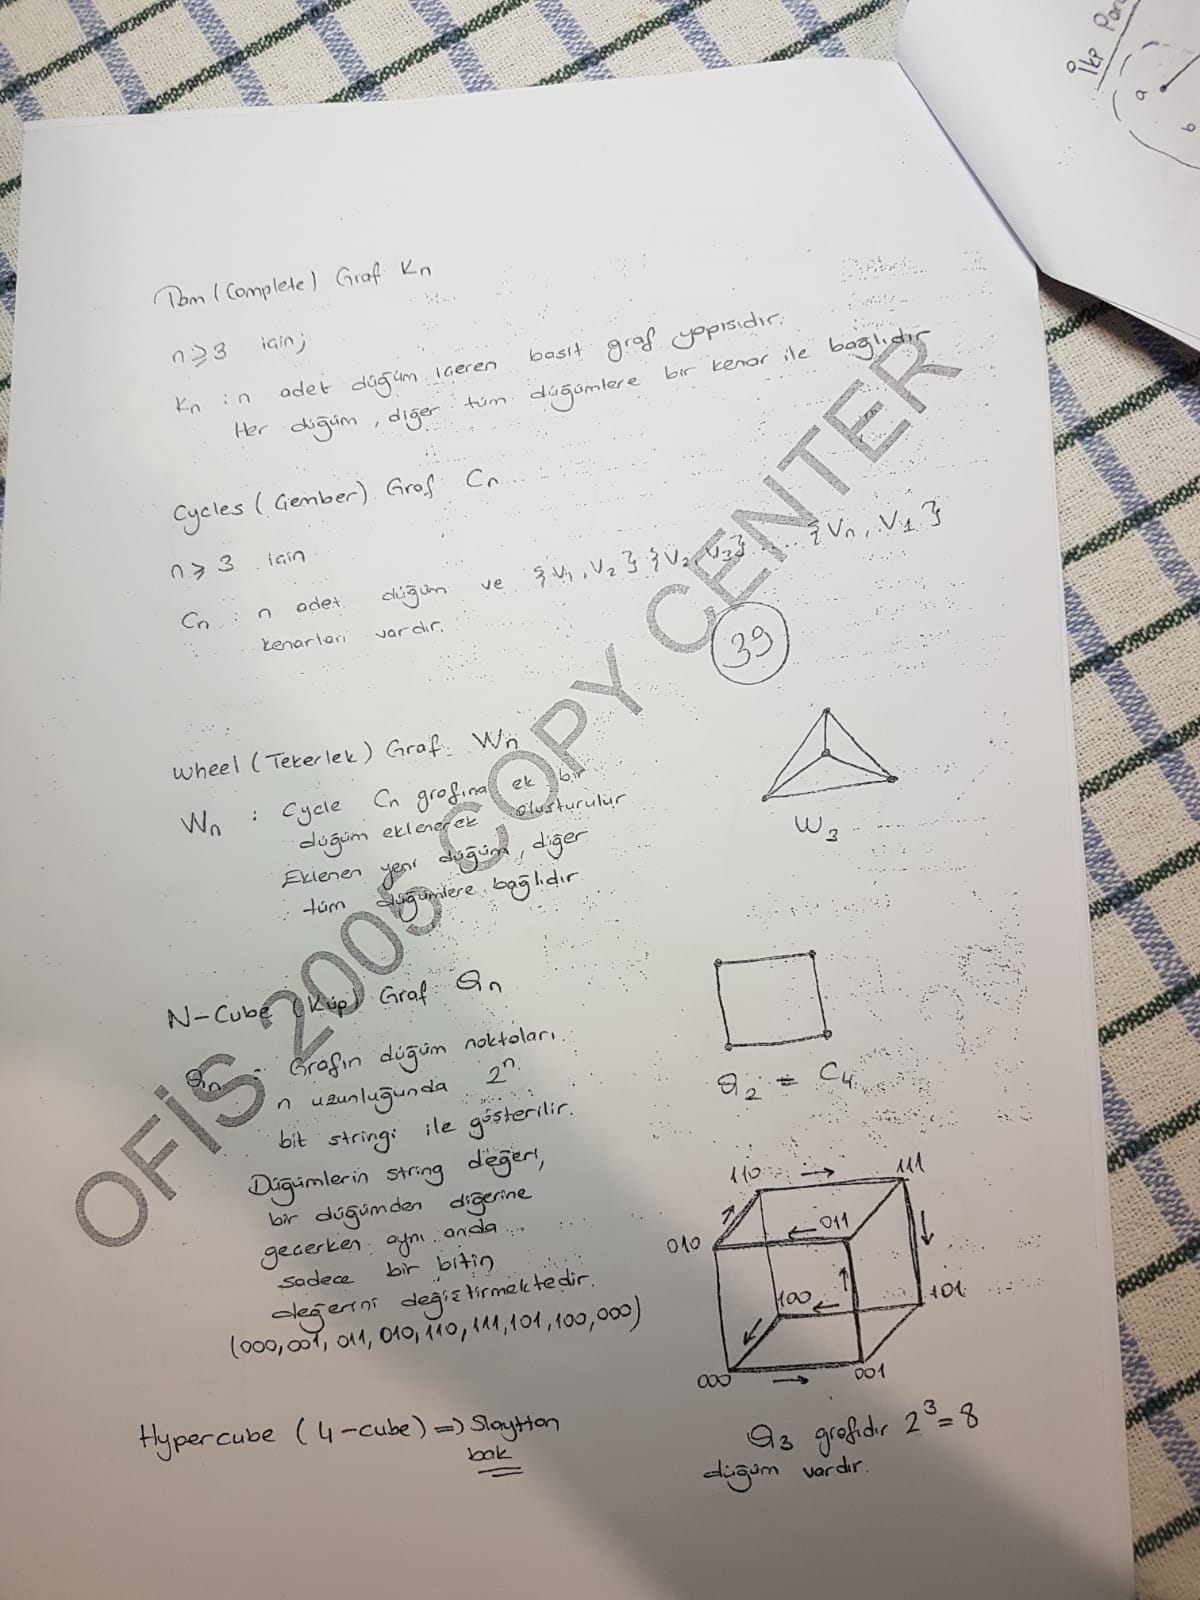 Tam (Complete) Graf Kn
n ≥ 3 için;
Kn : n adet düğüm içeren basit graf yapısıdır.
Her düğüm, diğer tüm düğümlere bir kenar ile bağlıdır
Cycles (Çember) Graf Cn
n ≥ 3 için
Cn : n adet düğüm ve {V1, V2} {V2, V3} ... {Vn, V1}
kenarları vardır.
39
Wheel (Tekerlek) Graf: Wn
Wn : Cycle Cn grafına ek bir
düğüm eklenerek oluşturulur
Eklenen yeni düğüm, diğer
tüm düğümlere bağlıdır
W3
N-Cube (Küp) Graf: Qn
Qn : Grafın düğüm noktaları
n uzunluğunda 2^n
bit stringi ile gösterilir.
Düğümlerin string değeri,
bir düğümden diğerine
geçerken aynı anda
sadece bir bitin
değerini değiştirmektedir.
(000, 001, 011, 010, 110, 111, 101, 100, 000)
Q2 = C4
110 → 111
010 ← 011
100 ← 101
000 → 001
Q3 grafıdır 2^3 = 8
düğüm vardır.
Hypercube (4-cube) => Slayttan
bak
OFİS 2005 COPY CENTER
a
b